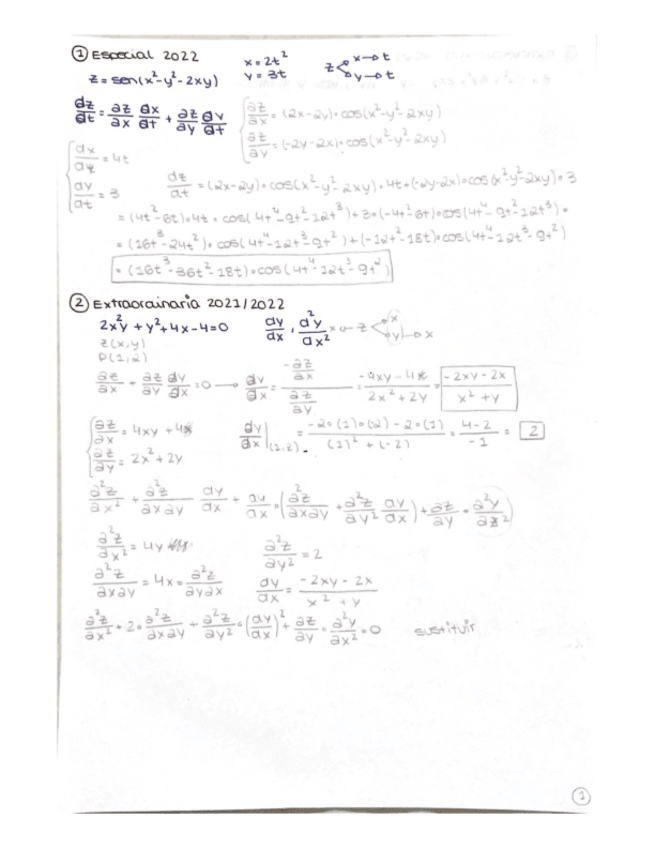 ① Especial 2022
z = sen(x²-y²-2xy)
x = 2t²
y = 3t
z x→t
y→t
dz/dt = ∂z/∂x dx/dt + ∂z/∂y dy/dt
∂z/∂x = (2x-2y)·cos(x²-y²-2xy)
∂z/∂y = (-2y-2x)·cos(x²-y²-2xy)
= 4t
dy/dt = 3
dz/dt = (2x-2y)·cos(x²-y²-2xy)·4t+(-2y-2x)·cos(x²-y²-2xy)·3
= (4t²-6t)·4t·cos(4t⁴-9t²-12t³)+3·(-4t²-6t)·cos(4t⁴-9t²-12t³)=
= (16t³-24t²)·cos(4t⁴-12t³-9t²)+(-12t²-18t)·cos(4t⁴-12t³-9t²)
= (16t³-36t²-18t)·cos(4t⁴-12t³-9t²)
② Extraordinaria 2021/2022
2x²y + y² + 4x - 4 = 0
dy/dx , d²y/dx²
x ← z x
y → x
z(x,y)
∂z/∂x + ∂z/∂y dy/dx = 0 → dy/dx = -∂z/∂x / ∂z/∂y = / 2x²+2y = -2xy-2x / x²+y
∂z/∂x = 4xy +
∂z/∂y = 2x²+2y
dy/dx |(1,-2) = -2·(1)·(-2)-2·(1) / (1)²+(-2) = 4-2 / -1 = 2
∂²z/∂x² + ∂²z/∂x∂y dy/dx + dy/dx·(∂²z/∂x∂y + ∂²z/∂y² dy/dx) + ∂z/∂y · ∂²y/∂x²
∂²z/∂x² = 4y
∂²z/∂y² = 2
∂²z/∂x∂y = 4x = ∂²z/∂y∂x
dy/dx = -2xy-2x / x²+y
∂²z/∂x² + 2·∂²z/∂x∂y + ∂²z/∂y²·(dy/dx)² + ∂z/∂y·∂²y/∂x² = 0
sustituir
1